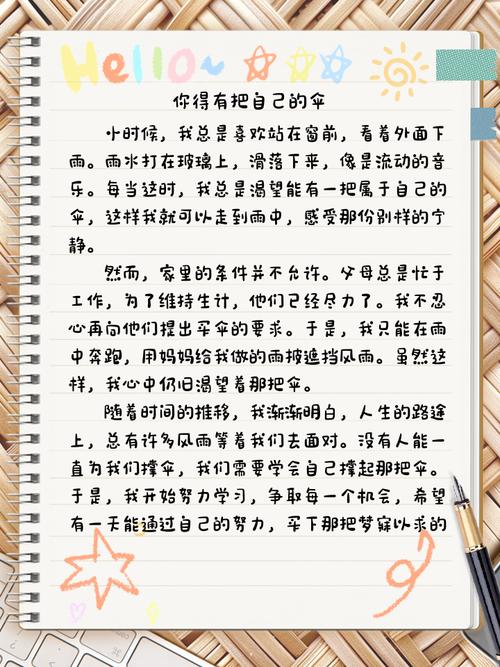 Hello~
你得有把自己的伞
小时候，我总是喜欢站在窗前，看着外面下
雨。雨水打在玻璃上，滑落下来，像是流动的音
乐。每当这时，我总是渴望能有一把属于自己的
伞，这样我就可以走到雨中，感受那份别样的宁
静。
然而，家里的条件并不允许。父母总是忙于
工作，为了维持生计，他们已经尽力了。我不忍
心再向他们提出买伞的要求。于是，我只能在雨
中奔跑，用妈妈给我做的雨披遮挡风雨。虽然这
样，我心中仍旧渴望着那把伞。
随着时间的推移，我渐渐明白，人生的路途
上，总有许多风雨等着我们去面对。没有人能一
直为我们撑伞，我们需要学会自己撑起那把伞。
于是，我开始努力学习，争取每一个机会，希望
有一天能通过自己的努力，买下那把梦寐以求的